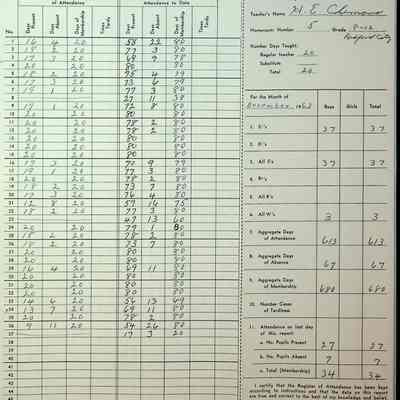 of Attendance Attendance to Date
No. Days Present Days Absent Days of Membership Times Tardy Days Present Days Absent Days of Membership Times Tardy
1 16 4 20 58 22 80
2 18 2 20 77 3 80
3 17 3 20 69 9 78
4 20 20 80 80
5 18 2 20 75 4 79
6 17 3 20 73 6 79
7 19 1 20 77 3 80
27 11 38
19 1 20 72 8 80
20 20 80 80
20 20 78 2 80
20 20 78 2 80
20 20 80 80
20 20 80 80
20 20 80 80
17 3 20 70 9 79
19 1 20 77 3 80
20 20 78 2 80
18 2 20 73 7 80
17 3 20 76 4 80
12 8 20 59 16 75
18 2 20 77 3 80
47 13 60
20 20 79 1 80
18 2 20 78 2 80
18 2 20 73 7 80
20 20 80 80
20 20 80 80
16 4 20 69 11 80
20 20 80 80
20 20 80 80
20 20 80 80
14 6 20 56 13 69
13 7 20 69 11 80
20 20 78 2 80
9 11 20 54 26 80
17 3 20
Teacher's Name H. E.
Homeroom Number 5 Grade
Number Days Taught:
Regular teacher 20
Substitute
Total 20
For the Month of
1963 Boys Girls Total
1. E's 37 37
2. D's
3. All E's 37 37
4. R's
5. All R's
6. All W's 3 3
7. Aggregate Days of Attendance 613 613
8. Aggregate Days of Absence 67 67
9. Aggregate Days of Membership 680 680
10. Number Cases of Tardiness
11. Attendance on last day of this report:
a. No. Pupils Present 27 27
b. No. Pupils Absent 7 7
c. Total (Membership) 34 34
I certify that the Register of Attendance has been kept
according to instructions and that the data on this report
are true and correct to the best of my knowledge and belief.